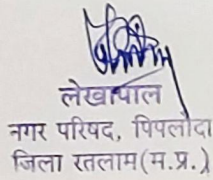 लेखापाल
नगर परिषद, पिपलौदा
जिला रतलाम (म.प्र.)